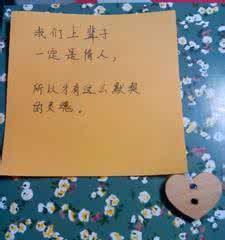 我们上辈子
一定是情人，
所以才有这么默契
的灵魂。